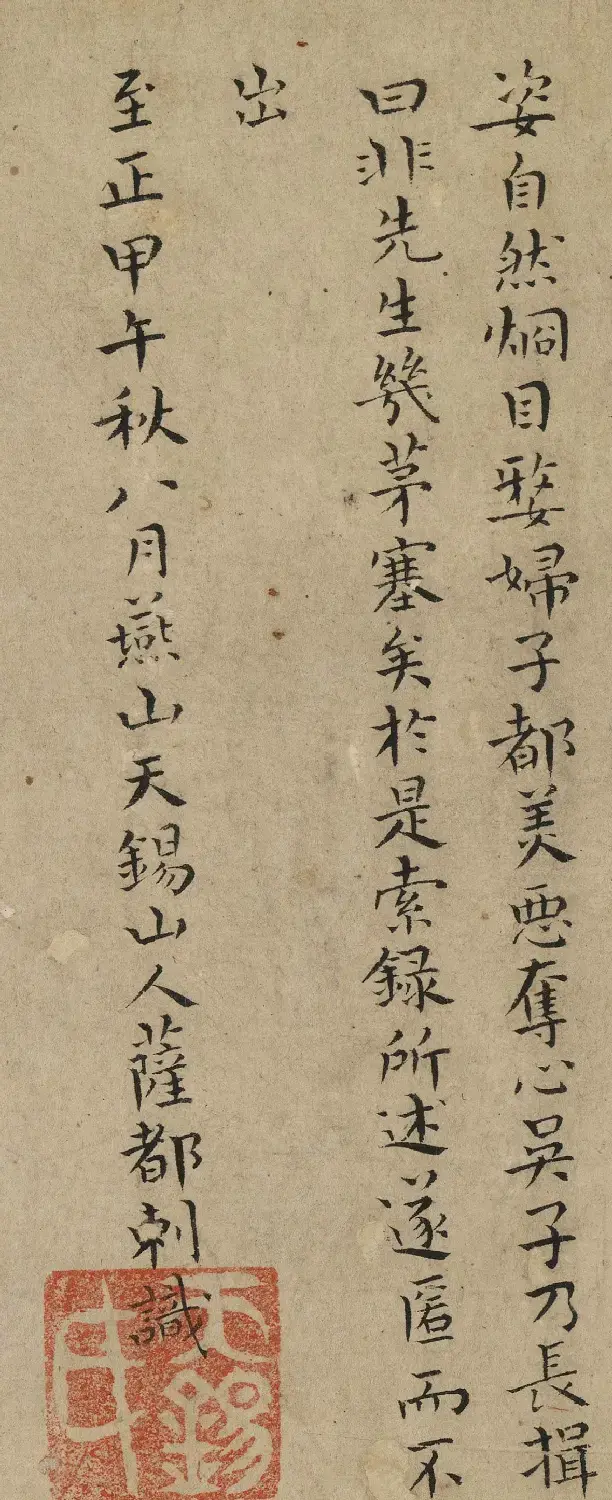 姿自然烱目婺婦子都美惡奪心吳子乃長揖
曰非先生幾茅塞矣於是索録所述遂匿而不
出
至正甲午秋八月燕山天錫山人薩都剌識
天錫